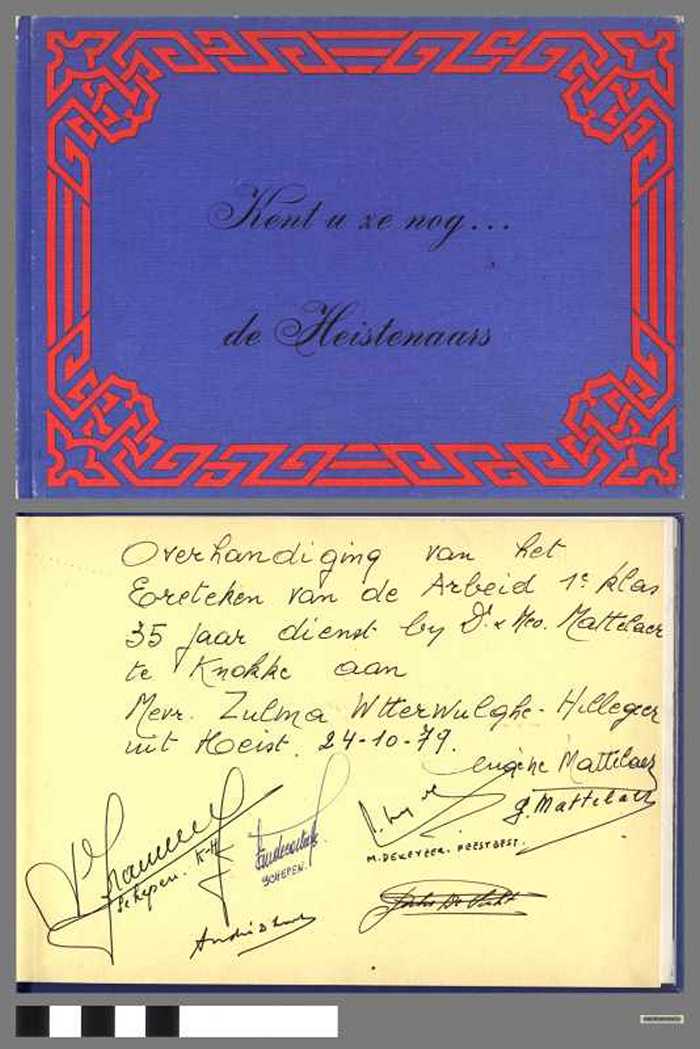 Kent u ze nog...
de Heistenaars
Overhandiging van het
Ereteken van de Arbeid 1e klas
35 jaar dienst by Dr & Mev. Mattelaer
te Knokke aan
Mevr. Zulma Wtterwulghe - Hillegeer
uit Heist. 24-10-79.
eugène Mattelaer
g. Mattelaer
Schepen. K-H
SCHEPEN.
M. DEKEYZER. FEESTBEST.